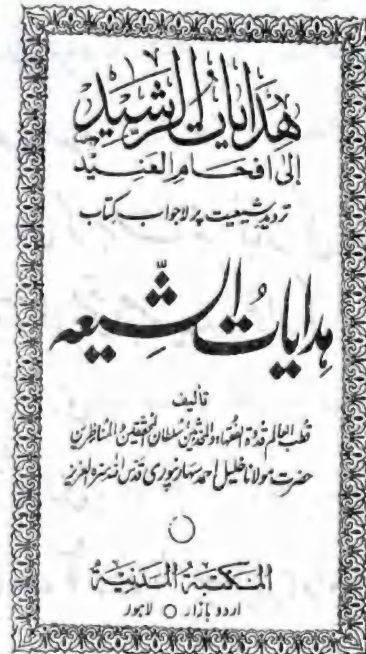 هدایات الرشید
إلى افحام العنید
تردید شیعیت پر لاجواب کتاب
ہدایات الشیعہ
تالیف
قطب العالم قدوة الفقہاء والمحدثین سلطان المحققین والمناظرین
حضرت مولانا خلیل احمد سہارنپوری قدس اللہ سرہ العزیز
المكتبة المدنية
اردو بازار ○ لاہور